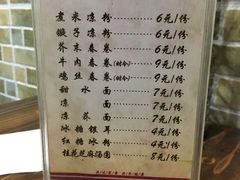 煮米凉粉 6元/份
猴子凉粉 6元/份
芥末春卷 6元/份
牛肉春卷(时令) 9元/份
鸡丝春卷(时令) 9元/份
甜水面 7元/份
凉面 7元/份
凉荞面 7元/份
冰糖银耳 4元/份
红糖冰粉 4元/份
桂花芝麻汤圆 8元/份